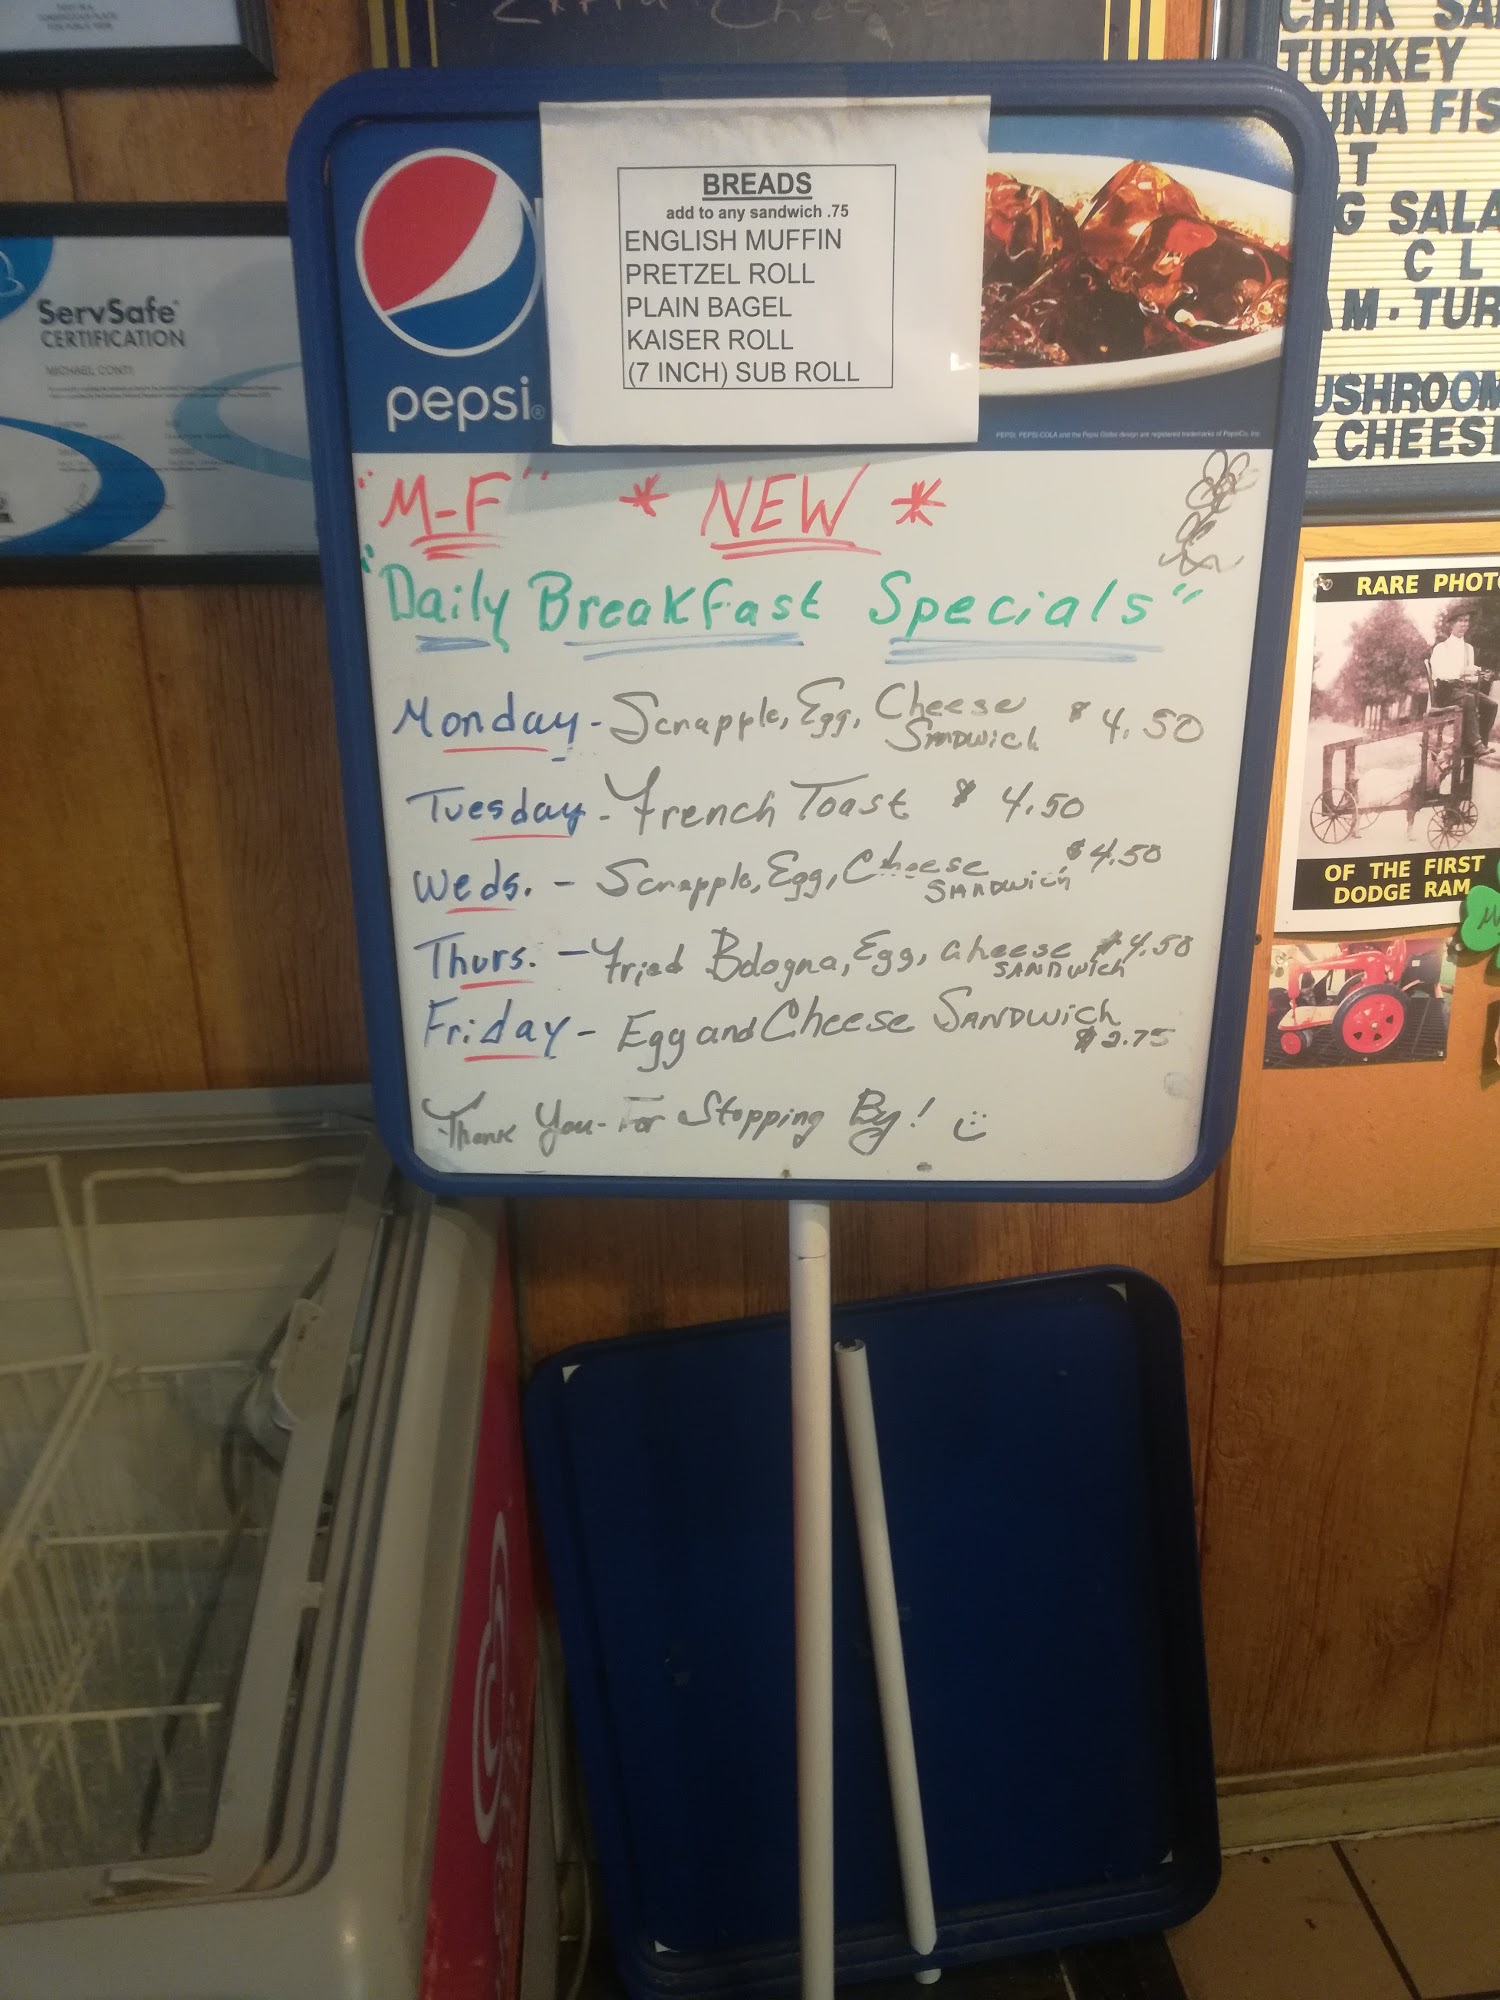 Extra Cheese
ServSafe®
CERTIFICATION
MICHAEL CONTI
pepsi®
BREADS
add to any sandwich .75
ENGLISH MUFFIN
PRETZEL ROLL
PLAIN BAGEL
KAISER ROLL
(7 INCH) SUB ROLL
PEPSI, PEPSI-COLA and the Pepsi Globe design are registered trademarks of PepsiCo, Inc.
"M-F" * NEW *
"Daily Breakfast Specials"
Monday - Scrapple, Egg, Cheese Sandwich $4.50
Tuesday - French Toast $4.50
Weds. - Scrapple, Egg, Cheese Sandwich $4.50
Thurs. - Fried Bologna, Egg, Cheese Sandwich $4.50
Friday - Egg and Cheese Sandwich $2.75
Thank You - For Stopping By!
CHIK SA
TURKEY
UNA FIS
T
G SALA
C L
AM · TUR
USHROOM
K CHEES
RARE PHOTO
OF THE FIRST
DODGE RAM